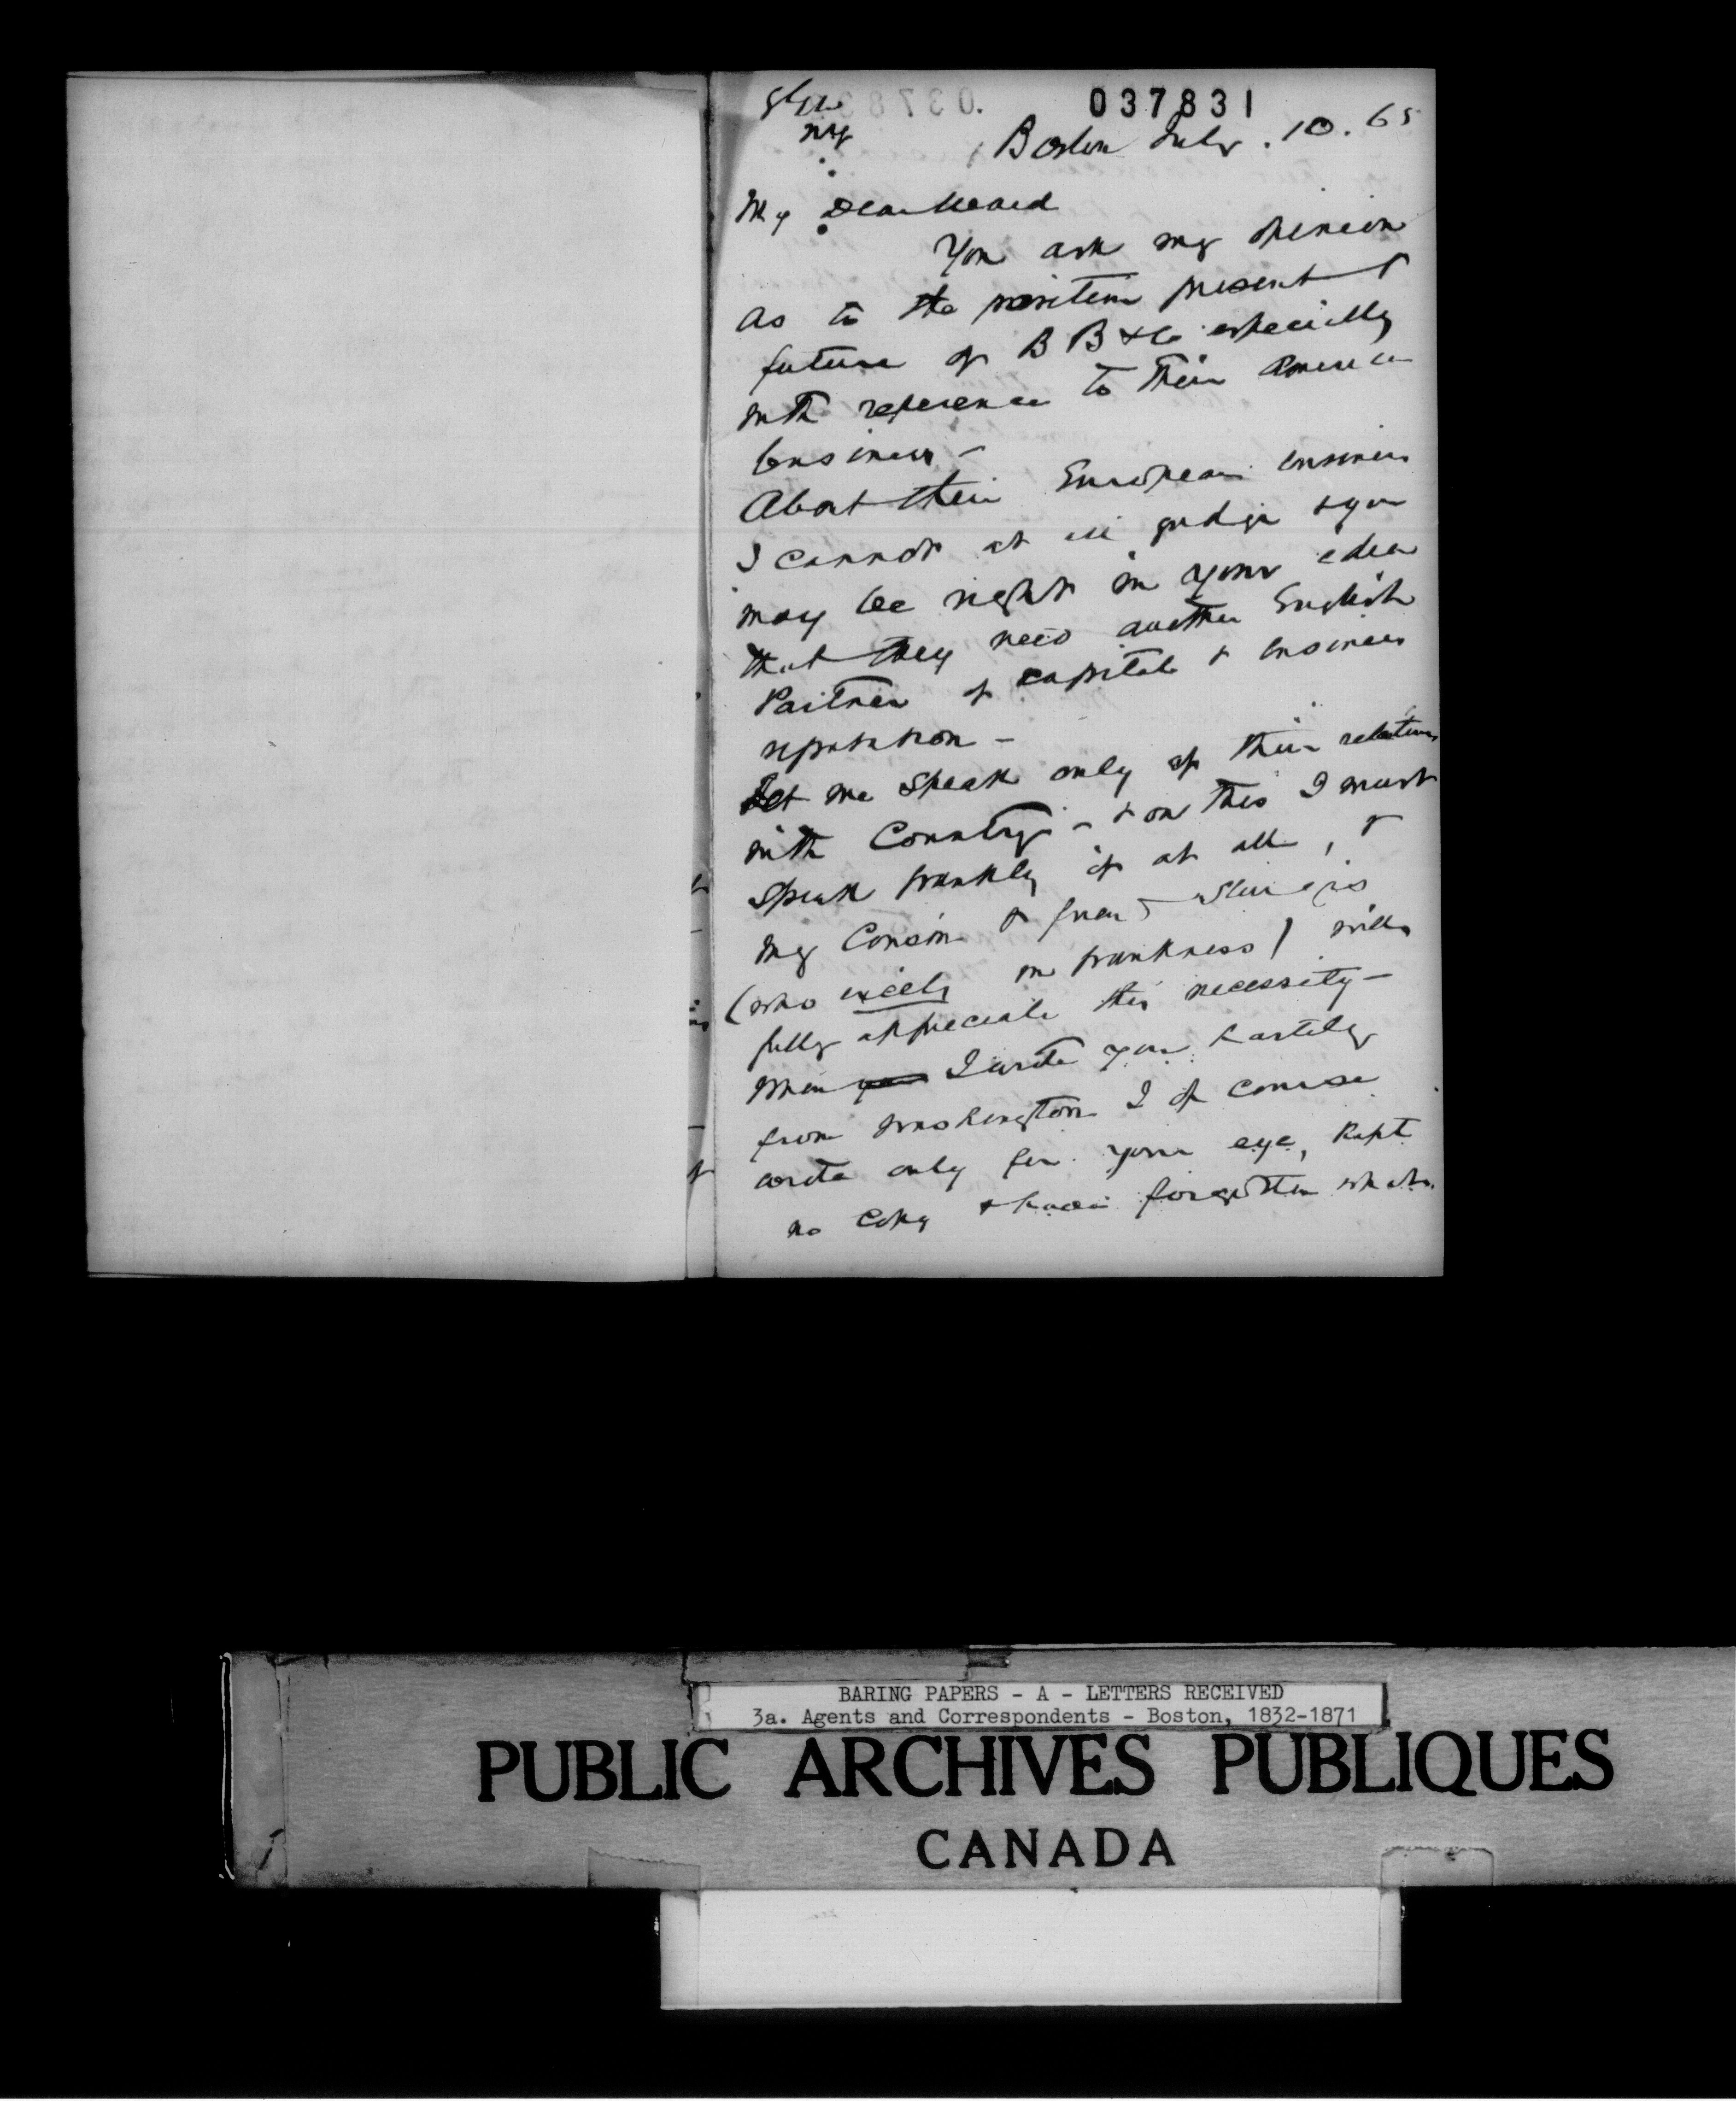 037831
Boston July . 10 . 65
My Dear Ward
You ask my opinion
as to the position present &
future of B B & Co especially
with reference to their America
business -
About their European business
I cannot at all judge & you
may be right in your idea
that they need another English
Partner of capital & business
reputation -
Let me speak only of their relations
with Country - & on this I must
speak frankly if at all, &
my Cousin & friend
(who excels in frankness) will
fully appreciate this necessity -
When I wrote you hastily
from Washington I of course
wrote only for your eye, kept
no copy & have forgotten what
BARING PAPERS - A - LETTERS RECEIVED
3a. Agents and Correspondents - Boston, 1832-1871
PUBLIC ARCHIVES PUBLIQUES
CANADA